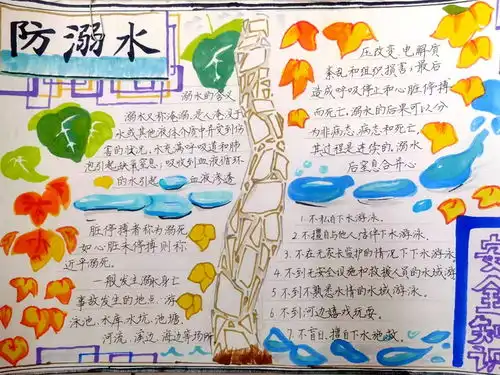 防溺水
溺水的含义
溺水又称淹溺,是人淹没于
水或其他液体介质中并受到伤
害的状况,水充满呼吸道和肺
泡引起缺氧窒息;吸收到血液循环
的水引起血液渗透
压改变、电解质
紊乱和组织损害;最后
造成呼吸停止和心脏停搏
而死亡,溺水的后果可以分
为非病态,病态和死亡,
其过程是连续的,溺水
后窒息合并心
脏停搏者称为溺死
如心脏未停搏则称
近乎溺死。
一般发生溺水身亡
事故发生的地点:游
泳池、水库水坑、池塘、
河流、溪边、海边等场所
1.不私自下水游泳。
2.不擅自与他人结伴下水游泳。
3.不在无家长监护的情况下下水游泳。
4.不到无安全设施和救援人员的水域游
5.不到不熟悉水情的水域游泳。
6.不到河边嬉戏玩安。
7.不盲目、擅自下水施救。
安全知识